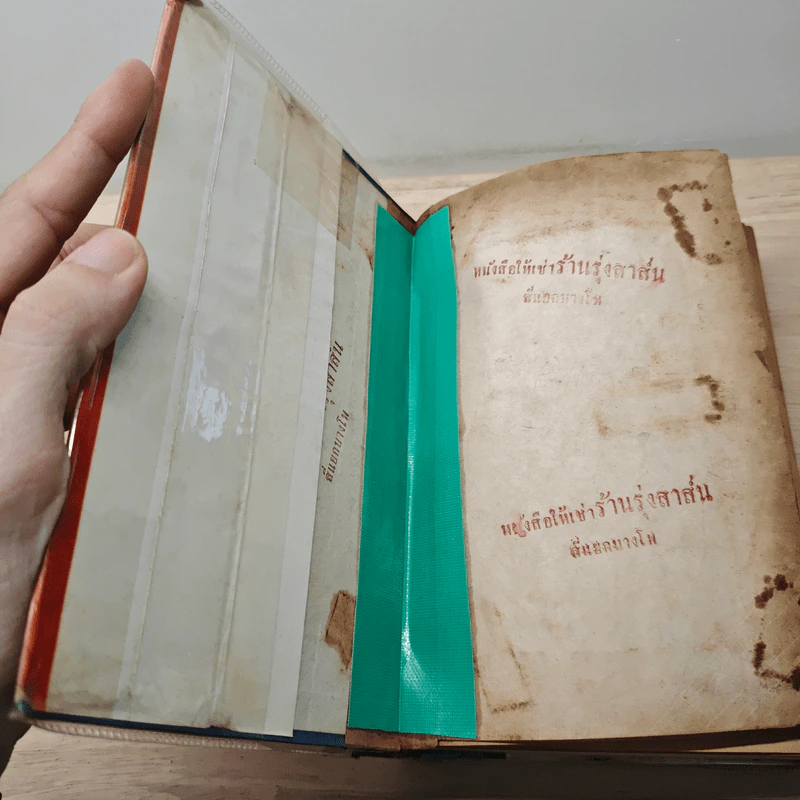 รุ่งสาส์น
สี่แยกบางโพ
หนังสือให้เช่าร้านรุ่งสาส์น
สี่แยกบางโพ
หนังสือให้เช่าร้านรุ่งสาส์น
สี่แยกบางโพ